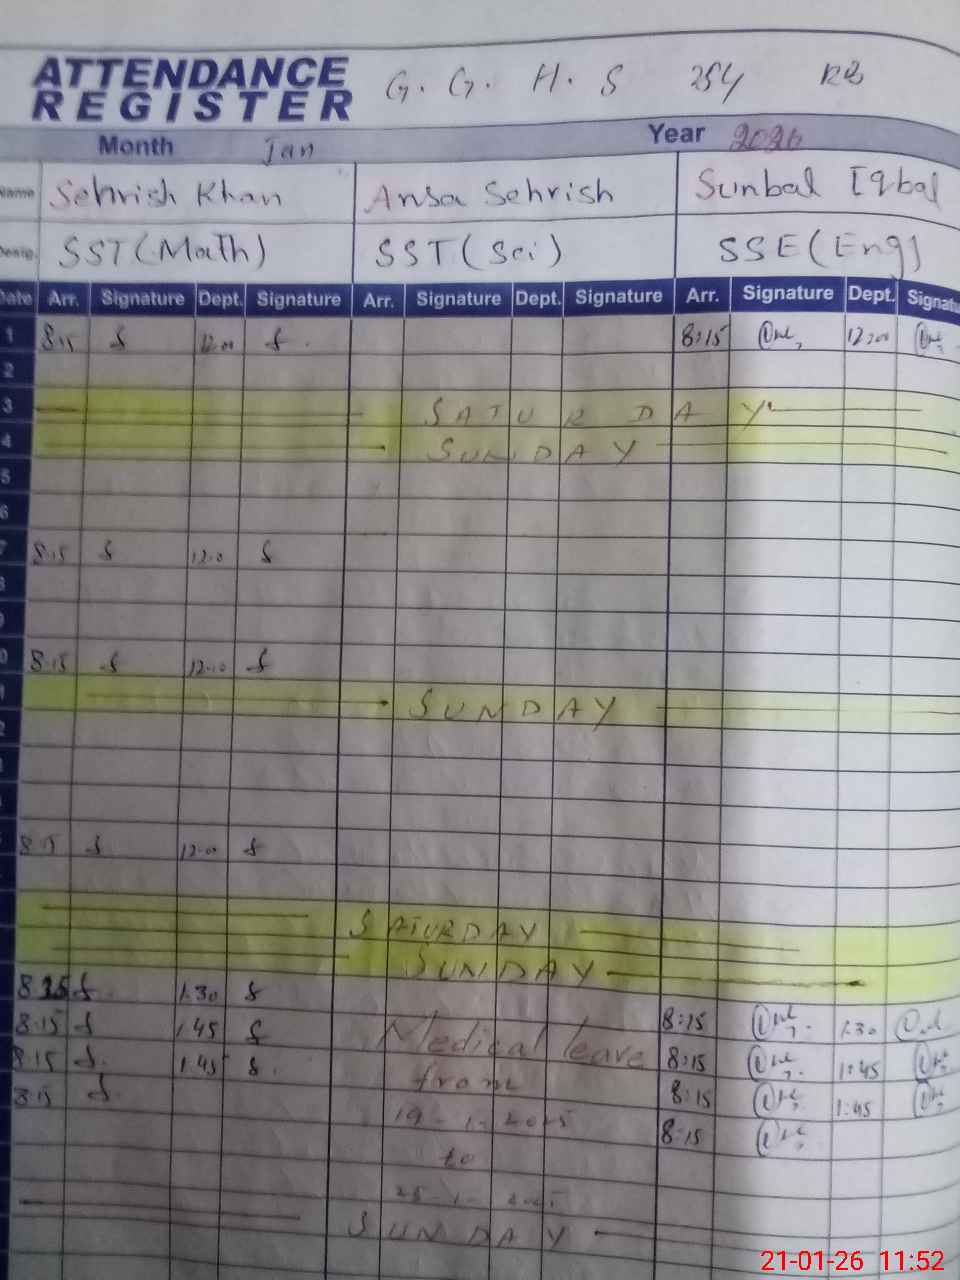 ATTENDANCE REGISTER G. G. H. S 254 RB
Month Jan Year 2026
Name Sehrish Khan Ansa Sehrish Sunbal Iqbal
Desig. SST (Math) SST (Sci) SSE (Eng)
Date Arr. Signature Dept. Signature Arr. Signature Dept. Signature Arr. Signature Dept. Signatu
1 8:15 12:00 8:15 12:00
2
3 SATURDAY
4 SUNDAY
5
6
7 8:15 12:0
8:15 12:00
SUNDAY
12:00
SATURDAY
SUNDAY
8:15 1:30
8:15 1:45 Medical leave 8:15 1:30
8:15 1:45 from 8:15 1:45
8:15 19-1-2025 8:15 1:45
to 8:15
25-1-2025
SUNDAY
21-01-26 11:52